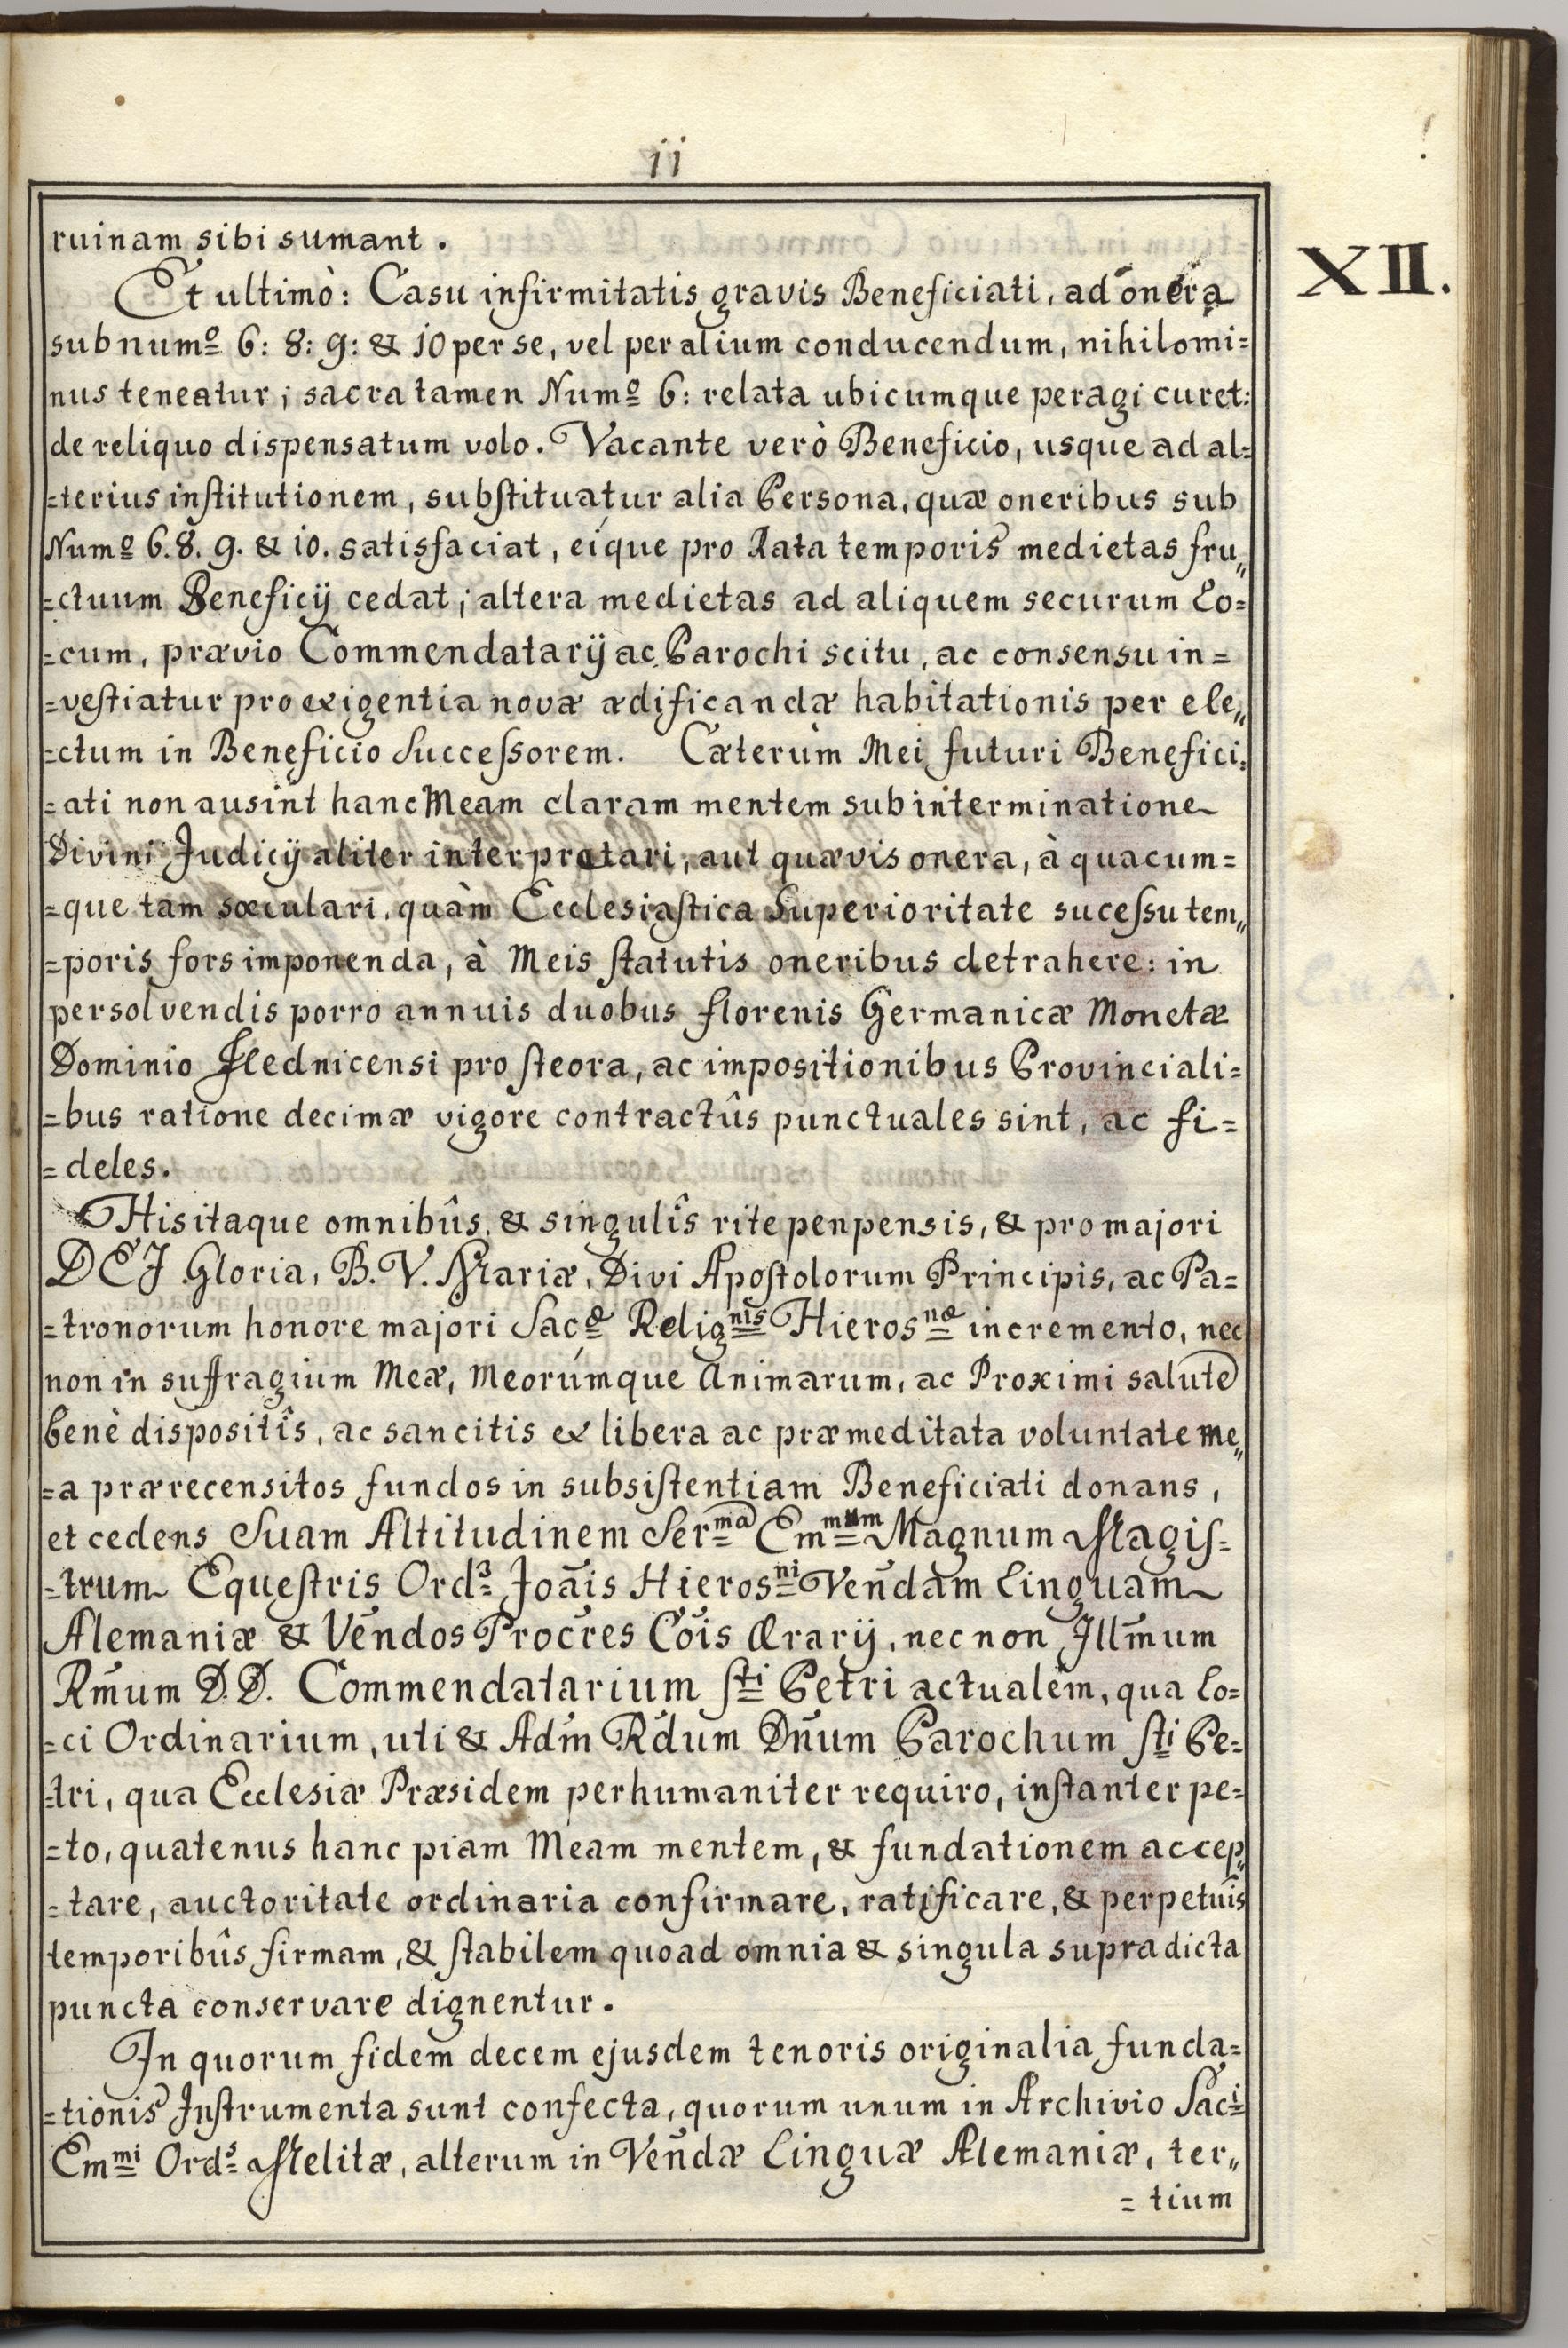 ii
ruinam sibi sumant.
XII.
Et ultimò: Casu infirmitatis gravis Beneficiati, ad onera
sub numº 6: 8: 9: & 10 per se, vel per alium conducendum, nihilomi=
nus teneatur; sacra tamen Numº 6: relata ubicumque peragi curet:
de reliquo dispensatum volo. Vacante verò Beneficio, usque ad al=
=terius inſtitutionem, subſtituatur alia Persona, quæ oneribus sub
Numº 6. 8. 9. & 10. satisfaciat, eíque pro Rata temporis medietas fru„
=ctuum Beneficij cedat; altera medietas ad aliquem securum Lo=
=cum, prævio Commendatarij ac Parochi scitu, ac consensu in=
=veſtiatur pro exigentia novæ ædificandæ habitationis per ele„
=ctum in Beneficio Succeſsorem. Cæterùm Mei futuri Benefici„
=ati non ausint hanc Meam claram mentem sub interminatione
Divini Judicij aliter interpretari, aut quævis onera, à quacum=
=que tam sœculari, quàm Ecclesiaſtica Superioritate suceſsu tem„
=poris fors imponenda, à Meis ſtatutis oneribus detrahere: in
persolvendis porro annuis duobus florenis Germanicæ Monetæ
Dominio Flednicensi pro ſteora, ac impositionibus Provinciali=
=bus ratione decimæ vigore contractûs punctuales sint, ac fi=
=deles.
His itaque omnibûs, & singulîs rite penpensis, & pro majori
DEJ Gloria, B. V. Mariæ, Divi Apoſtolorum Principis, ac Pa=
=tronorum honore majori Sacæ Relignis Hierosnæ incremento, nec
non in suffragium Meæ, Meorúmque Animarum, ac Proximi salute
benè dispositîs, ac sancitis ex libera ac præmeditata voluntate Me„
=a prærecensitos fundos in subsiſtentiam Beneficiati donans,
et cedens Suam Altitudinem Serma Emmum Magnum Magiſ=
=trum Equeſtris Ord3 Joa͞is Hierosni Ven͞dam Linguam
Alemaniæ & Ven͞dos Proc͞res Co͞is Ærarij, nec non Jllm͞um
Rm͞um D.D. Commendatarium ſti Petri actualem, qua Lo=
=ci Ordinarium, uti & Adm͞ Rd͞um Dn͞um Parochum ſti Pe=
=tri, qua Ecclesiæ Præsidem perhumaniter requiro, inſtanter pe=
=to, quatenus hanc piam Meam mentem, & fundationem accep„
=tare, auctoritate ordinaria confirmare, ratificare, & perpetuis
temporibûs firmam, & ſtabilem quoad omnia & singula supradicta
puncta conservare dignentur.
Jn quorum fidem decem ejusdem tenoris originalia funda=
=tionis Jnſtrumenta sunt confecta, quorum unum in Archivio Saci
Emmi Ords Melitæ, alterum in Ven͞dæ Linguæ Alemaniæ, ter„
=tium